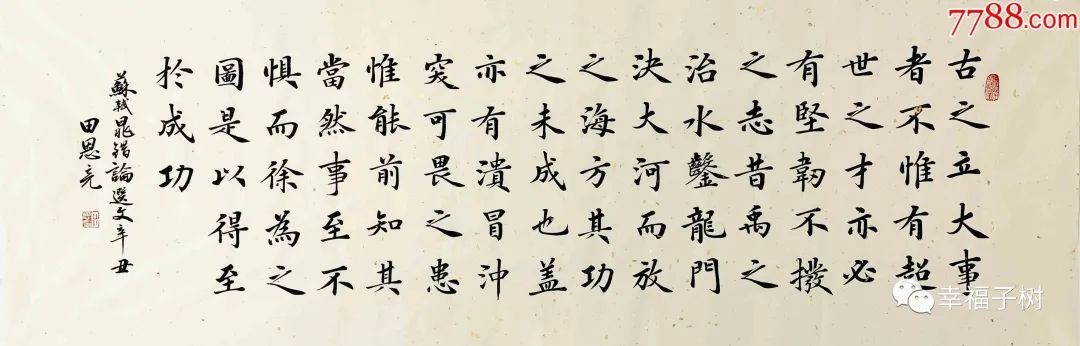 古之立大事
者不惟有超
世之才亦必
有堅韌不撥
之志昔禹之
治水鑿龍門
決大河而放
之海方其功
之未成也盖
亦有潰冒沖
突可畏之患
惟能前知其
當然事至不
惧而徐為之
圖是以得至
於成功
蘇軾晁錯論選文辛丑
田恩亮
7788.com
幸福子树